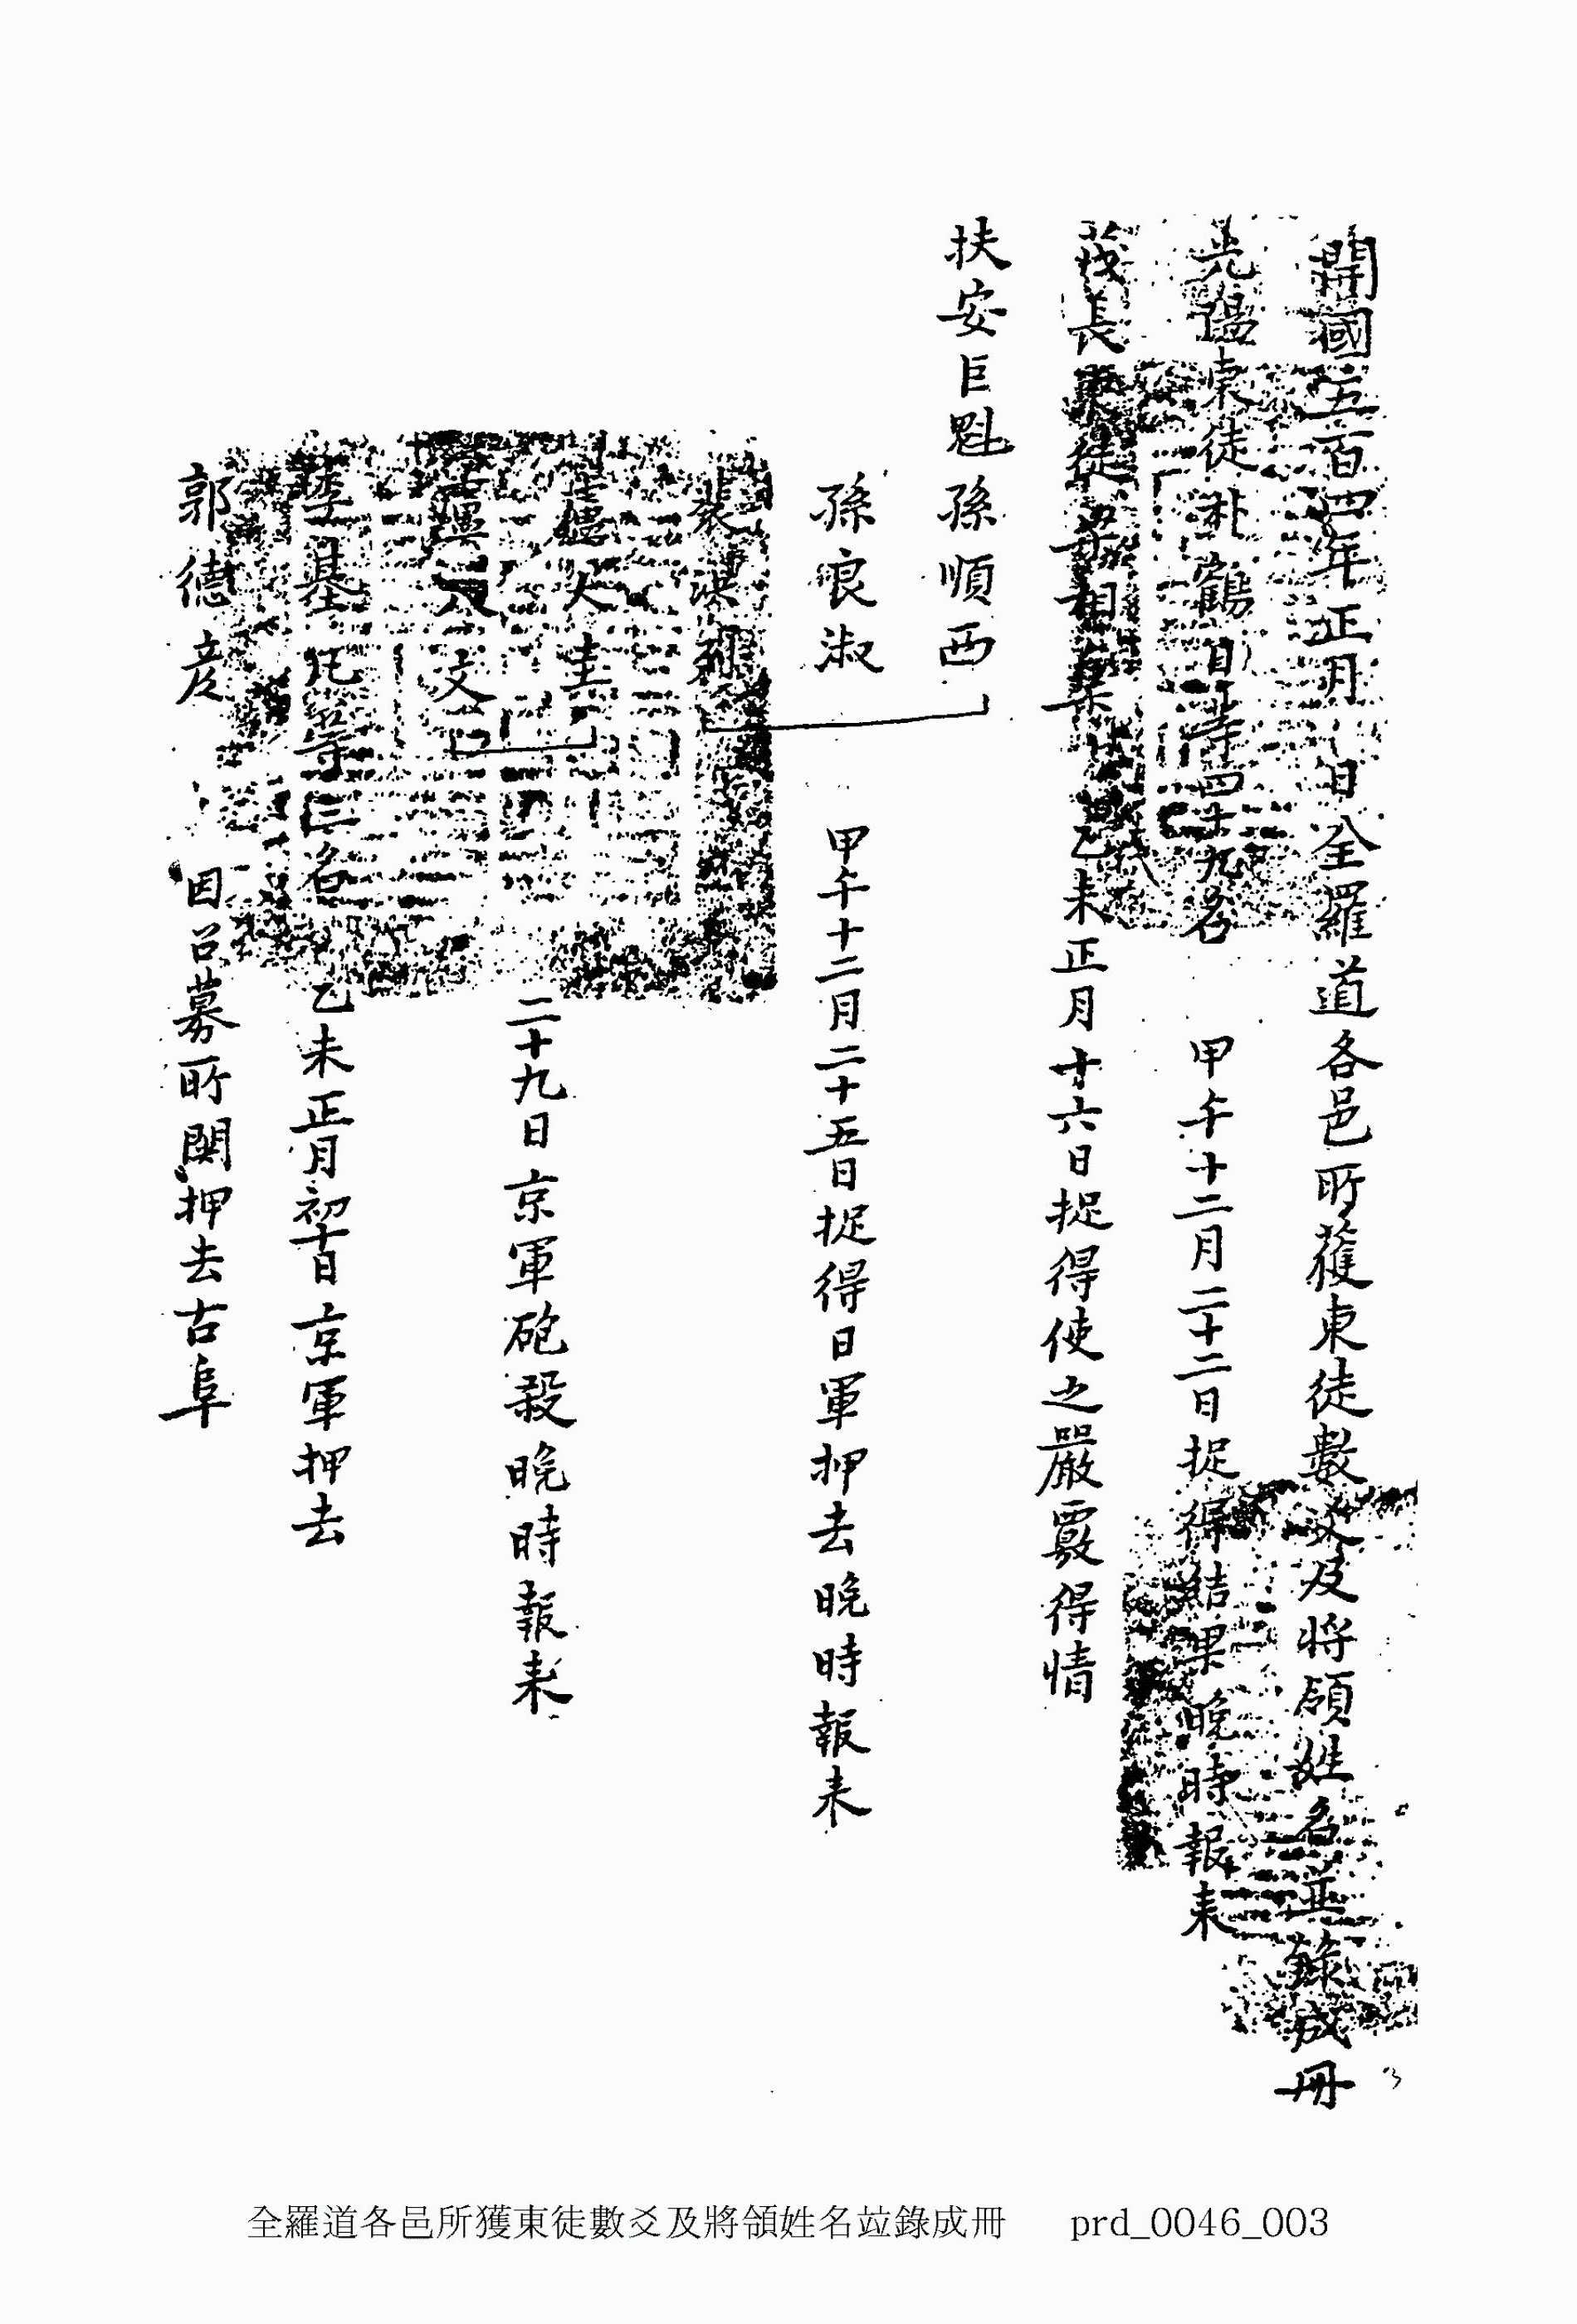 開國五百四年正月 日全羅道各邑所獲東徒數爻及將領姓名並錄成冊
光陽東徒 鶴 等四十九名 甲午十二月二十二日捉得結果晚時報来
茂長東徒 相 乙未正月十六日捉得使之嚴覈得情
扶安巨魁孫順西
孫良淑 甲午十二月二十五日捉得日軍押去晚時報来
裴洪
大圭 二十九日京軍砲殺晚時報来
文
李基凡等三名 乙未正月初十日京軍押去
郭德彦 因召募所関押去古阜
全羅道各邑所獲東徒數爻及將領姓名竝錄成冊 prd_0046_003